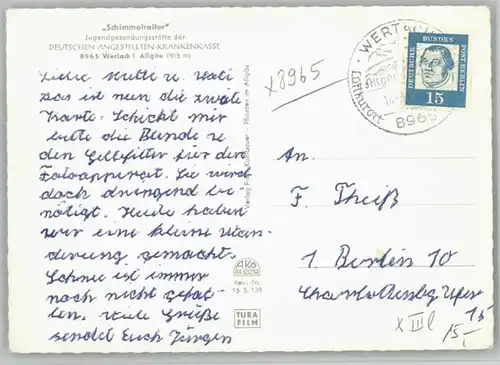 „Schimmelreiter“
Jugendgesundungsstätte der
DEUTSCHEN ANGESTELLTEN-KRANKENKASSE
8965 Wertach i. Allgäu (915 m)
Liebe Mutti u. Vati
Das ist nun die zweite
Karte. Schickt mir
bitte die Bunde u
den Gelbfilter für den
Fotoapperat. Sie wird
doch dringend be-
nötigt. Heute haben
wir eine kleine Wan-
derung gemacht.
Schnee ist immer
noch nicht gefal-
len. Viele Grüße
sendet Euch Jürgen
x8965
Verlag Franz
AKO
Best.-Nr.
15 5 139
TURA
FILM
WERTACH
Luftkurort
8965
DEUTSCHE BUNDESPOST BERLIN
15
An.
F. Theiß
1 Berlin 10
Charlottenbg Ufer
15
X III
15,-